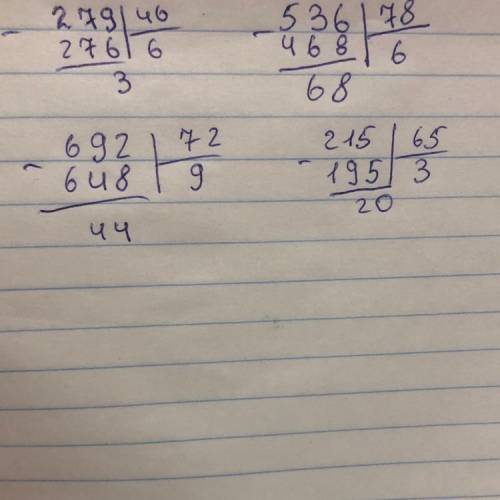 279 46 536 78
- 276 6 - 468 6
3 68
692 72 215 65
- 648 9 - 195 3
44 20